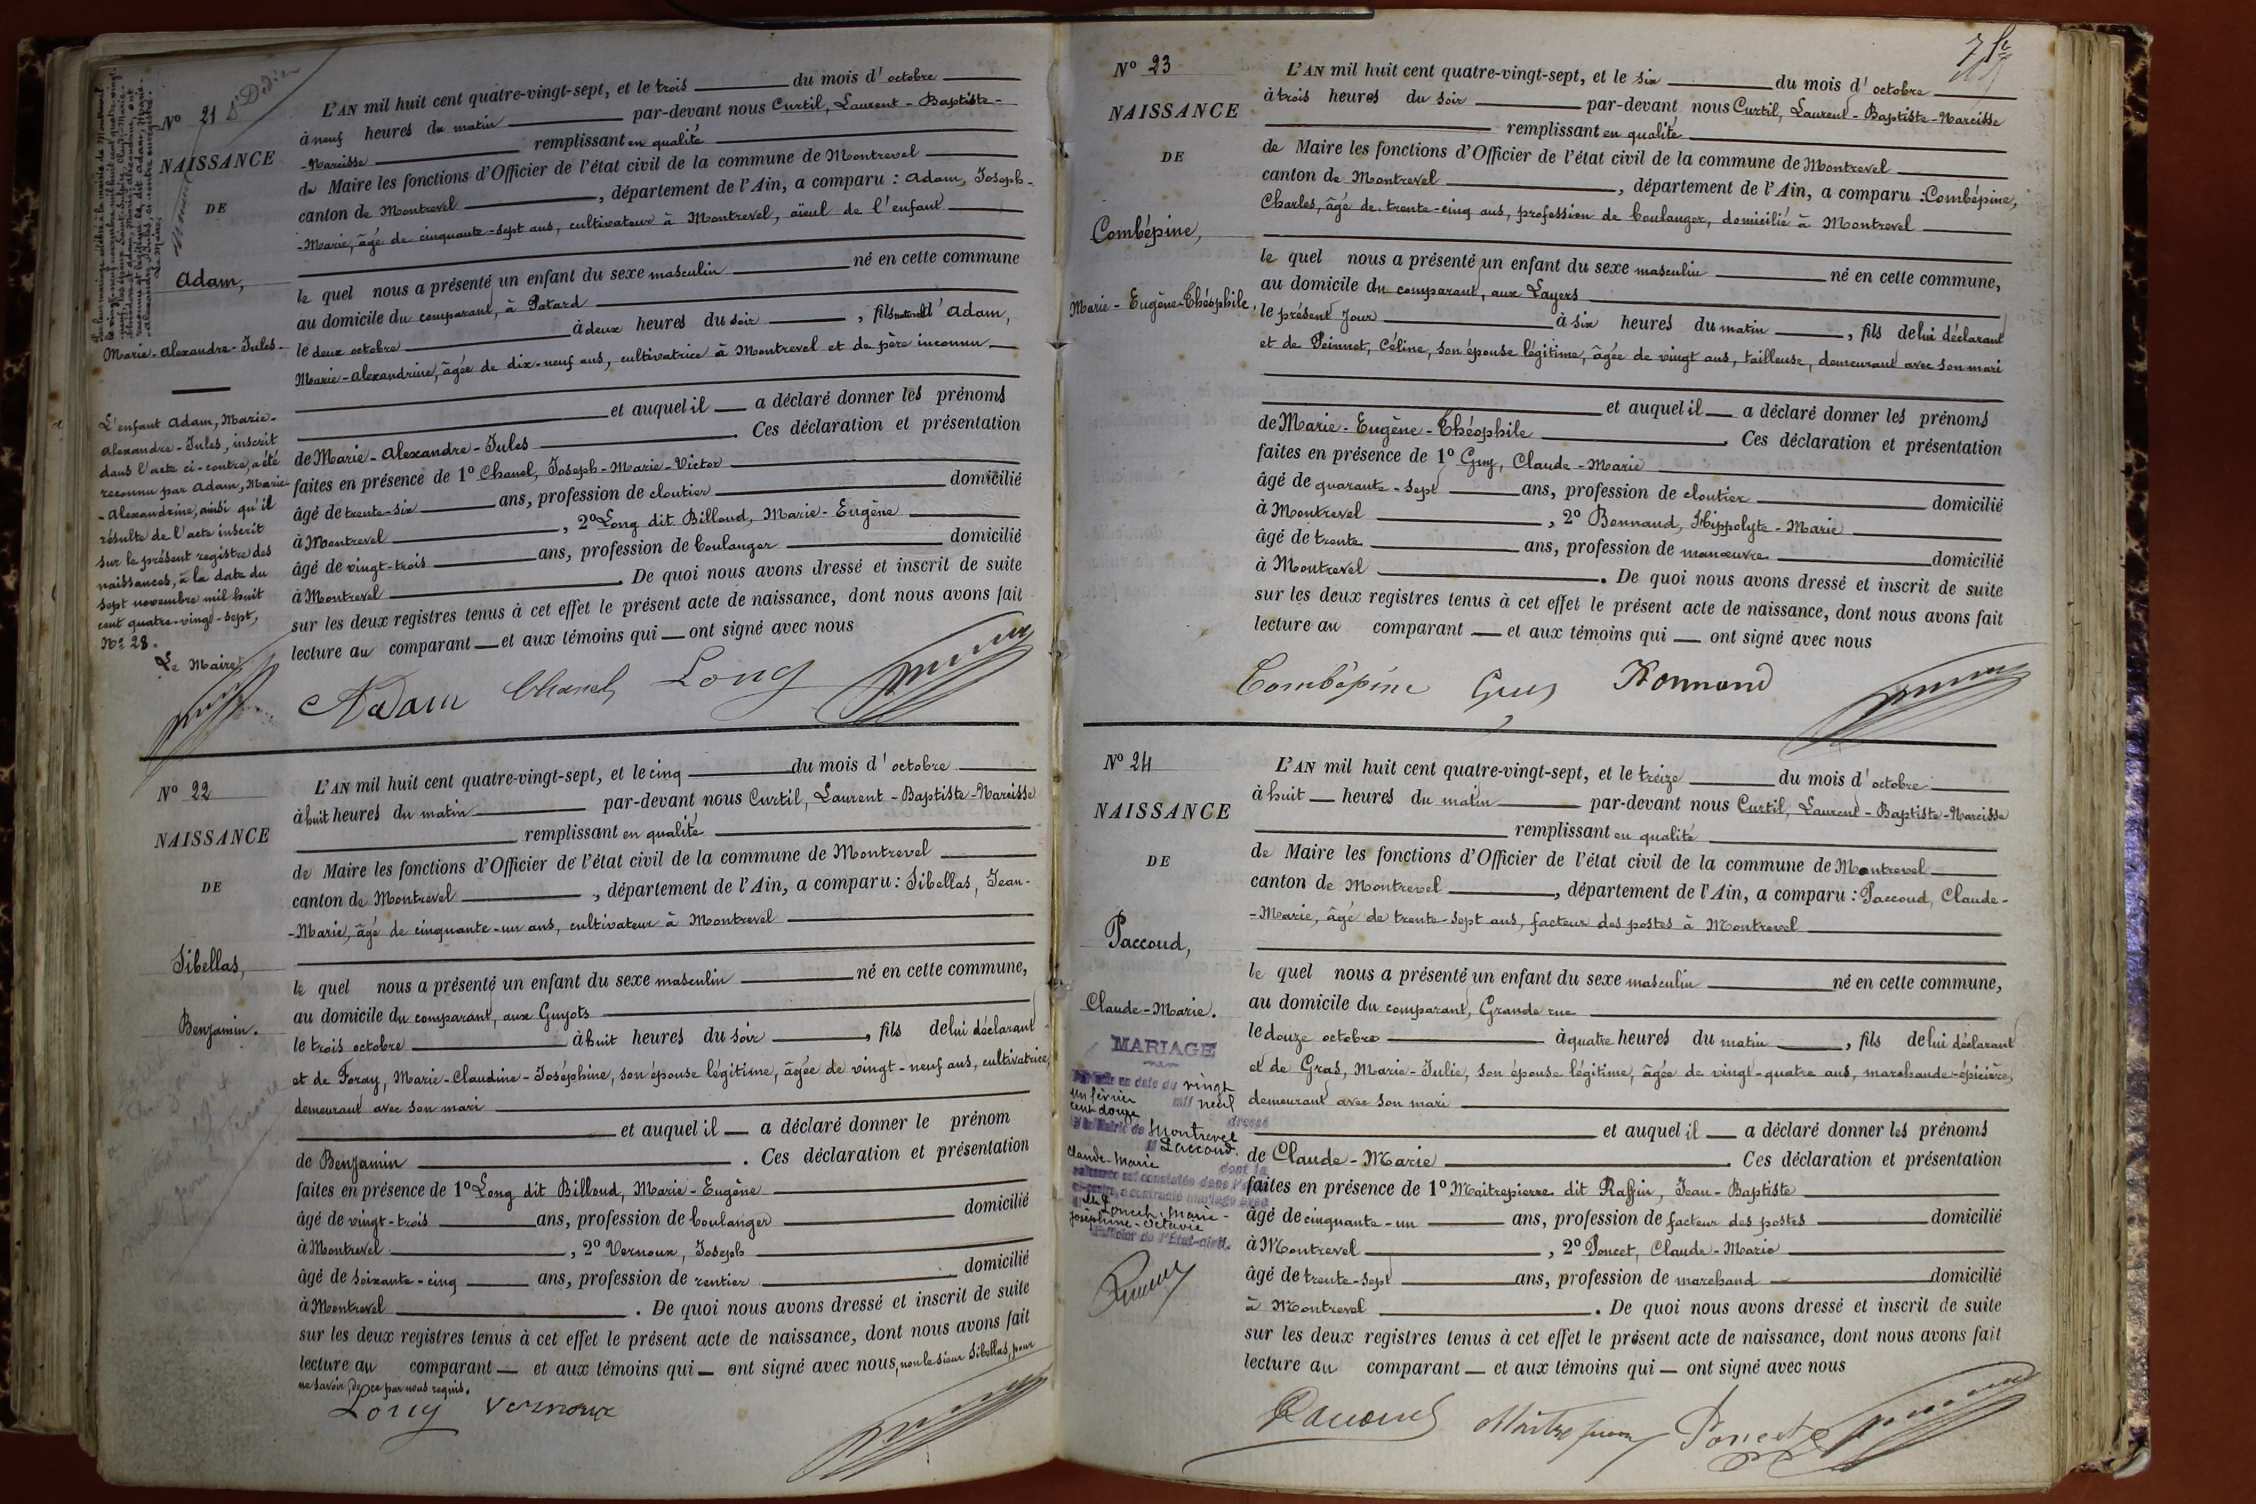 Nº 21
NAISSANCE
DE
Adam,
Marie-Alexandre-Jules-
L'enfant Adam, Marie-
Alexandre-Jules, inscrit
dans l'acte ci-contre, a été
reconnu par Adam, Marie-
-Alexandrine, ainsi qu'il
résulte de l'acte inscrit
sur le présent registre des
naissances, à la date du
sept novembre mil huit
cent quatre-vingt-sept,
Nº 28.
Le Maire
L'AN mil huit cent quatre-vingt-sept, et le trois du mois d'octobre
à neuf heures du matin par-devant nous Curtil, Laurent-Baptiste-
-Narcisse remplissant en qualité
de Maire les fonctions d'Officier de l'état civil de la commune de Montrevel
canton de Montrevel, département de l'Ain, a comparu : Adam, Joseph-
-Marie, âgé de cinquante-sept ans, cultivateur à Montrevel, aïeul de l'enfant
le quel nous a présenté un enfant du sexe masculin né en cette commune
au domicile du comparant, à Patard
le deux octobre à deux heures du soir, fils naturel d'Adam,
Marie-Alexandrine, âgée de dix-neuf ans, cultivatrice à Montrevel et de père inconnu
et auquel il a déclaré donner les prénoms
de Marie-Alexandre-Jules. Ces déclaration et présentation
faites en présence de 1º Chanel, Joseph-Marie-Victor
âgé de trente-six ans, profession de cloutier domicilié
à Montrevel, 2º Long dit Billoud, Marie-Eugène
âgé de vingt-trois ans, profession de boulanger domicilié
à Montrevel. De quoi nous avons dressé et inscrit de suite
sur les deux registres tenus à cet effet le présent acte de naissance, dont nous avons fait
lecture au comparant et aux témoins qui ont signé avec nous
Adam Chanel Long
Nº 22
NAISSANCE
DE
Sibellas,
Benjamin.
L'AN mil huit cent quatre-vingt-sept, et le cinq du mois d'octobre
à huit heures du matin par-devant nous Curtil, Laurent-Baptiste-Narcisse
remplissant en qualité
de Maire les fonctions d'Officier de l'état civil de la commune de Montrevel
canton de Montrevel, département de l'Ain, a comparu : Sibellas, Jean-
-Marie, âgé de cinquante-un ans, cultivateur à Montrevel
le quel nous a présenté un enfant du sexe masculin né en cette commune,
au domicile du comparant, aux Guyots
le trois octobre à huit heures du soir, fils de lui déclarant
et de Foray, Marie-Claudine-Joséphine, son épouse légitime, âgée de vingt-neuf ans, cultivatrice,
demeurant avec son mari
et auquel il a déclaré donner le prénom
de Benjamin. Ces déclaration et présentation
faites en présence de 1º Long dit Billoud, Marie-Eugène
âgé de vingt-trois ans, profession de boulanger domicilié
à Montrevel, 2º Vernoux, Joseph
âgé de soixante-cinq ans, profession de rentier domicilié
à Montrevel. De quoi nous avons dressé et inscrit de suite
sur les deux registres tenus à cet effet le présent acte de naissance, dont nous avons fait
lecture au comparant et aux témoins qui ont signé avec nous, non le sieur Sibellas, pour
ne savoir, de ce par nous requis.
Long Vernoux
Nº 23
NAISSANCE
DE
Combépine,
Marie-Eugène-Théophile,
L'AN mil huit cent quatre-vingt-sept, et le six du mois d'octobre
à trois heures du soir par-devant nous Curtil, Laurent-Baptiste-Narcisse
remplissant en qualité
de Maire les fonctions d'Officier de l'état civil de la commune de Montrevel
canton de Montrevel, département de l'Ain, a comparu : Combépine,
Charles, âgé de trente-cinq ans, profession de boulanger, domicilié à Montrevel
le quel nous a présenté un enfant du sexe masculin né en cette commune,
au domicile du comparant, aux Layers
le présent jour à six heures du matin, fils de lui déclarant
et de Peinnet, Céline, son épouse légitime, âgée de vingt ans, tailleuse, demeurant avec son mari
et auquel il a déclaré donner les prénoms
de Marie-Eugène-Théophile. Ces déclaration et présentation
faites en présence de 1º Guy, Claude-Marie
âgé de quarante-sept ans, profession de cloutier domicilié
à Montrevel, 2º Bonnaud, Hippolyte-Marie
âgé de trente ans, profession de manœuvre domicilié
à Montrevel. De quoi nous avons dressé et inscrit de suite
sur les deux registres tenus à cet effet le présent acte de naissance, dont nous avons fait
lecture au comparant et aux témoins qui ont signé avec nous
Combépine Guy Bonnand
Nº 24
NAISSANCE
DE
Paccoud,
Claude-Marie.
MARIAGE
en date du vingt
un février mil neuf
cent douze dressé
à la Mairie de Montrevel
Paccoud
Claude-Marie dont la
naissance est constatée dans l'acte
ci-contre, a contracté mariage avec
Poncet, Marie-
Joséphine-Octavie
L'Officier de l'État-civil.
L'AN mil huit cent quatre-vingt-sept, et le treize du mois d'octobre
à huit heures du matin par-devant nous Curtil, Laurent-Baptiste-Narcisse
remplissant en qualité
de Maire les fonctions d'Officier de l'état civil de la commune de Montrevel
canton de Montrevel, département de l'Ain, a comparu : Paccoud, Claude-
-Marie, âgé de trente-sept ans, facteur des postes à Montrevel
le quel nous a présenté un enfant du sexe masculin né en cette commune,
au domicile du comparant, Grande rue
le douze octobre à quatre heures du matin, fils de lui déclarant
et de Gras, Marie-Julie, son épouse légitime, âgée de vingt-quatre ans, marchande-épicière,
demeurant avec son mari
et auquel il a déclaré donner les prénoms
de Claude-Marie. Ces déclaration et présentation
faites en présence de 1º Maitrepierre dit Raffin, Jean-Baptiste
âgé de cinquante-un ans, profession de facteur des postes domicilié
à Montrevel, 2º Poncet, Claude-Marie
âgé de trente-sept ans, profession de marchand domicilié
à Montrevel. De quoi nous avons dressé et inscrit de suite
sur les deux registres tenus à cet effet le présent acte de naissance, dont nous avons fait
lecture au comparant et aux témoins qui ont signé avec nous
Paccoud Maitrepierre Poncet